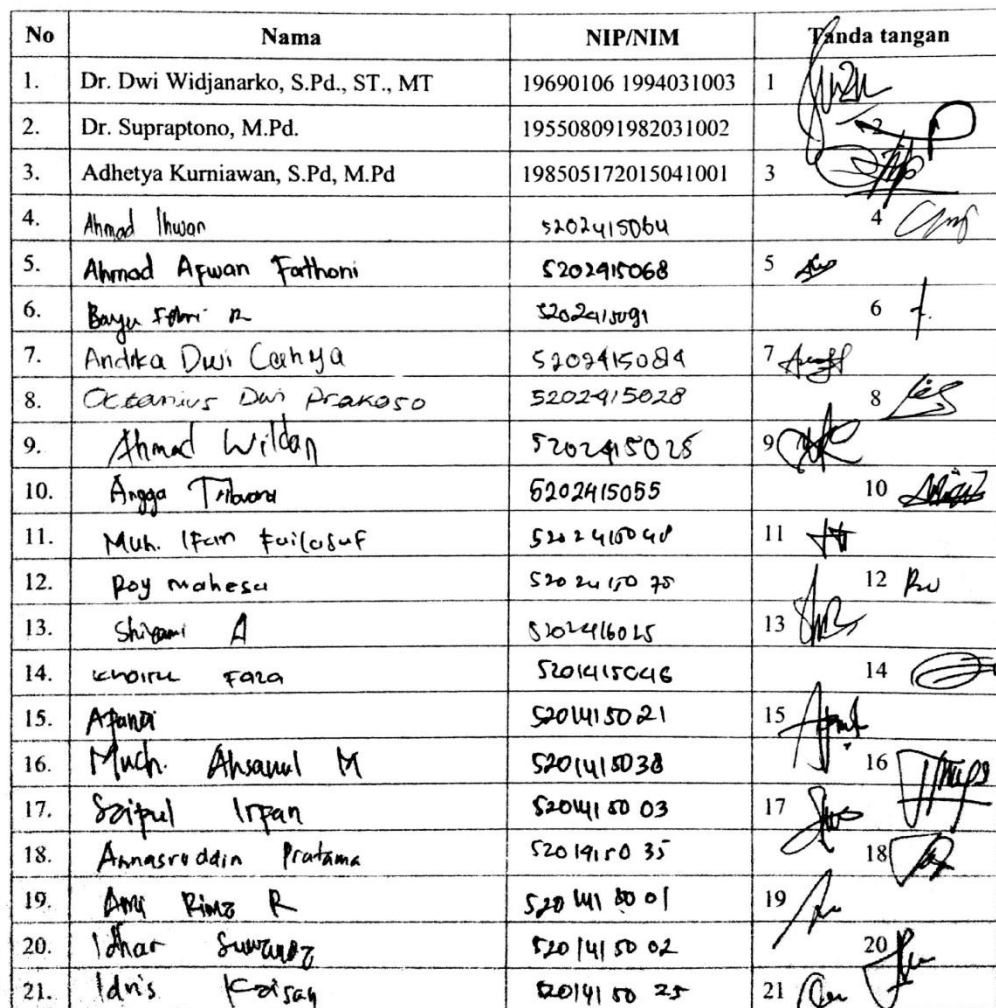 No Nama NIP/NIM Tanda tangan
1. Dr. Dwi Widjanarko, S.Pd., ST., MT 19690106 1994031003 1
2. Dr. Supraptono, M.Pd. 195508091982031002 2
3. Adhetya Kurniawan, S.Pd, M.Pd 198505172015041001 3
4. Ahmad Ihwan 5202415064 4
5. Ahmad Afwan Fathoni 5202415068 5
6. Bayu Febri R 5202415091 6
7. Andika Dwi Cahya 5202415084 7
8. Octanius Dwi Prakoso 5202415028 8
9. Ahmad Wildan 5202415025 9
10. Angga 5202415055 10
11. Muh. Ifan Failasuf 5202415048 11
12. Roy mahesa 5202415075 12
13. A 13
14. Khoiru Faza 5201415046 14
15. Afandi 5201415021 15
16. Much. Ahsanul M 5201415038 16
17. Saiful Irfan 5201415003 17
18. Annasruddin Pratama 5201415035 18
19. R 5201415001 19
20. Idhar 5201415002 20
21. Idris 5201415025 21